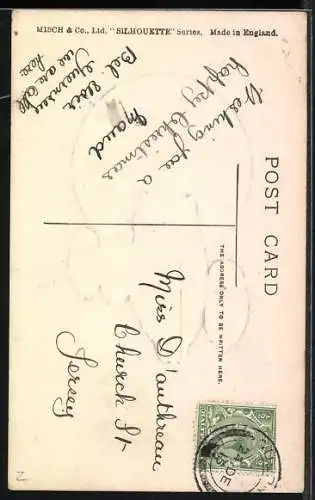 MISCH & Co., Ltd. "SILHOUETTE" Series, Made in England.
POST CARD
THE ADDRESS ONLY TO BE WRITTEN HERE.
Wishing you a
happy Christmas
Maud
Guernsey
we are all
here
Miss D'authreau
Church St
Jersey